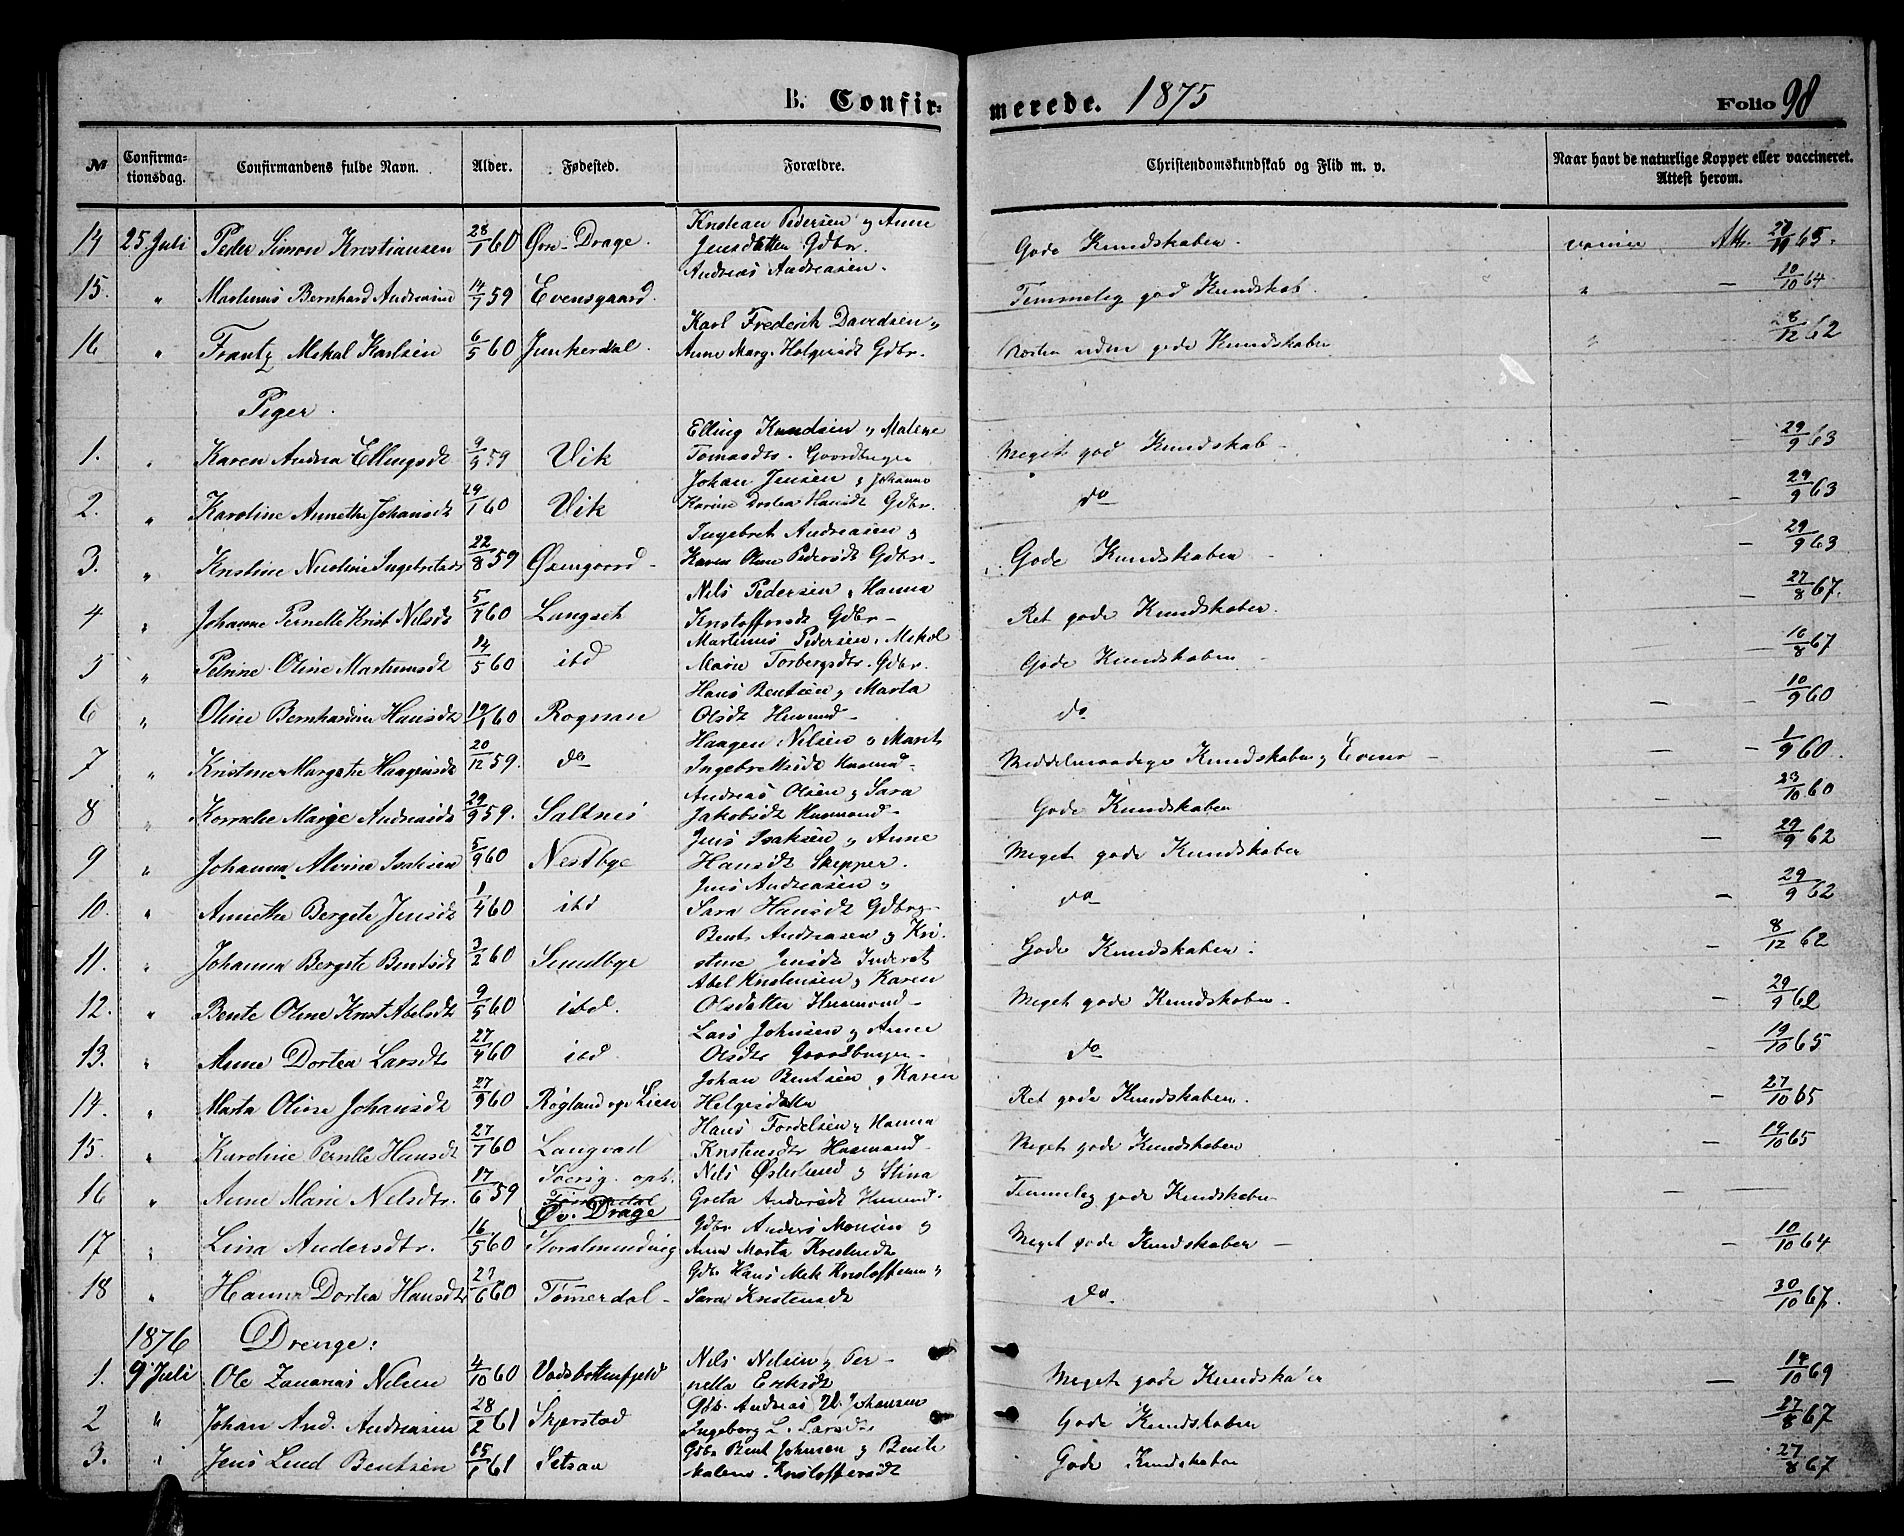 B. Confirmerede. 1875 Folio 98
№ Confirmationsdag. Confirmandens fulde Navn. Alder. Fødested. Forældre. Christendomskundskab og Flid m. v. Naar havt de naturlige Kopper eller vaccineret. Attest herom.
14 25 Juli Peder Simon Kristiansen 28/1 60 Øvre Drage. Kristian Pedersen og Anne Jensdatter Gdbr. Gode Kundskaber. Att. 65.
15. " Martinus Bernhard Andreasen 14/7 59 Evensgaard. Andreas Andreasen. Temmelig god Kundskab. " — 10/10 64
16 " Frantz Mekal Karlsen 6/5 60 Junkerdal. Karl Frederik Davidsen og Anne Marg. Holgersdt Gdbr. gode Kundskaber " 8/12 62
Piger.
1. " Karen Andrea Ellingsdt 9/9 59 Vik Elling Knudsen og Malene Tomasdtr. Gaardbruger Meget god Kundskab — 29/9 63
2. " Karoline Annethe Johansdt 29/1 60 Vik Johan Jensen og Johanna Karine Dortea Hansdt Gdbr. do — 29/9 63
3. " Kristine Nicoline Ingebretsdt 22/8 59 Øxengaard Ingebret Andreasen og Karen Oline Pedersdt Gdbr. Gode Kundskaber — 29/9 63
4 " Johanne Pernelle Krist Nelsdt 5/7 60 Langset Nils Pedersen og Hanna Kristoffersdt Gdbr. Ret gode Kundskaber. — 27/8 67.
5 " Petrine Oline Martinusdt 14/5 60 ibd Martinus Pedersen, Mekal Marie Torbergsdtr. Gdbr. Gode Kundskaber — 16/8 67
6 " Oline Bernhardine Hansdt 19/1 60 Rognan Hans Bentsen og Marta Olsdt Husmd. do — 10/9 60
7 " Kristine Margrete Haagensdt 20/12 59. do Haagen Nilsen og Maret Ingebretsdt Husmd. Middelmaadige Kundskaber og Evner — 1/9 60.
8 " Kornelie Margie Andreasdt 29/9 59. Saltnes Andreas Olsen og Sara Jakobsdt Husmand Gode Kundskaber — 23/10 60
9 " Johanna Alvine Isaksen 5/9 60 Nestbye Jens Isaksen og Anne Hansdt Skipper. Meget gode Kundskaber — 29/9 62
10. " Annetha Bergete Jensdt 1/4 60 ibd Jens Andreasen og Sara Hansdt Gdbrg. do — 29/9 62
11. " Johanna Bergete Bentsdt 3/2 60 Sundbye Bent Andreasen og Kristine Jensdt Inderst Gode Kundskaber — 8/12 62
12. " Bente Oline Krist Abelsdt 9/5 60 ibd. Abel Kristensen og Karen Olsdatter Husmand Meget gode Kundskaber — 29/9 62
13. " Anne Dortea Larsdt 27/4 60 ibd Lars Johnsen og Anne Olsdtr Gaardbruger do — 19/10 65
14. " Marta Oline Johansdt 27/9 60 Røgland opr Lien Johan Bentsen og Karen Helgesdatter Ret gode Kundskaber. — 27/10 65
15. " Karoline Pernelle Hansdt 27/7 60 Langvad Hans Fordelsen og Hanna Kristensdtr Husmand Meget gode Kundskaber — 19/10 65
16 " Anne Marie Nelsdtr. 17/6 59 Sverig. oph. Øv. Drage Nils Østerlund og Stina Greta Andersdt Husmd. Temmelig gode Kundskaber — —
17 " Lina Andersdtr. 16/5 60 Gdbr Anders Monsen og Anne Marta Kristensdt Meget gode Kundskaber — 10/10 64
18 " Hanna Dortea Hansdtr 27/6 60 Tømerdal Gdbr Hans Mek Kristoffersen og Sara Kristensdt do. — 30/10 67.
1876 Drenge:
1. 9 Juli Ole Zakarias Nilsen 4/10 60 Vadsbottenfjeld Nils Nilsen og Pernella Eriksdt Meget gode Kundskaber — 14/10 69
2 " Johan And. Andreasen 28/2 61 Skjerstad Gdb. Andreas U. Johansen Ingeborg L. Larsdtr Gode Kundskaber — 27/8 67
3. " Jens Lund Bentsen 15/1 61 Setsaa Gdbr Bent Johnsen og Bente Malene Kristoffersdt Gode Kundskaber 27/8 67